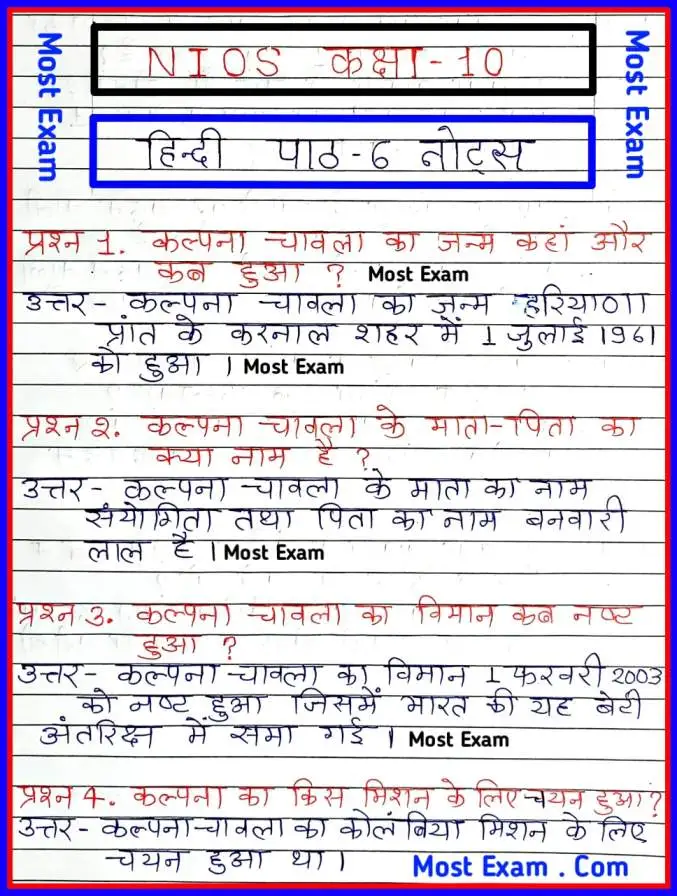 Most Exam
NIOS कक्षा-10
Most Exam
हिन्दी पाठ-6 नोट्स
प्रश्न 1. कल्पना चावला का जन्म कहां और
कब हुआ ? Most Exam
उत्तर- कल्पना चावला का जन्म हरियाणा
प्रांत के करनाल शहर में 1 जुलाई 1961
को हुआ । Most Exam
प्रश्न २. कल्पना चावला के माता-पिता का
क्या नाम है ?
उत्तर- कल्पना चावला के माता का नाम
संयोगिता तथा पिता का नाम बनवारी
लाल है । Most Exam
प्रश्न 3. कल्पना चावला का विमान कब नष्ट
हुआ ?
उत्तर- कल्पना चावला का विमान 1 फरवरी 2003
को नष्ट हुआ जिसमें भारत की यह बेटी
अंतरिक्ष में समा गई । Most Exam
प्रश्न 4. कल्पना का किस मिशन के लिए चयन हुआ ?
उत्तर- कल्पना चावला का कोलंबिया मिशन के लिए
चयन हुआ था । Most Exam . Com